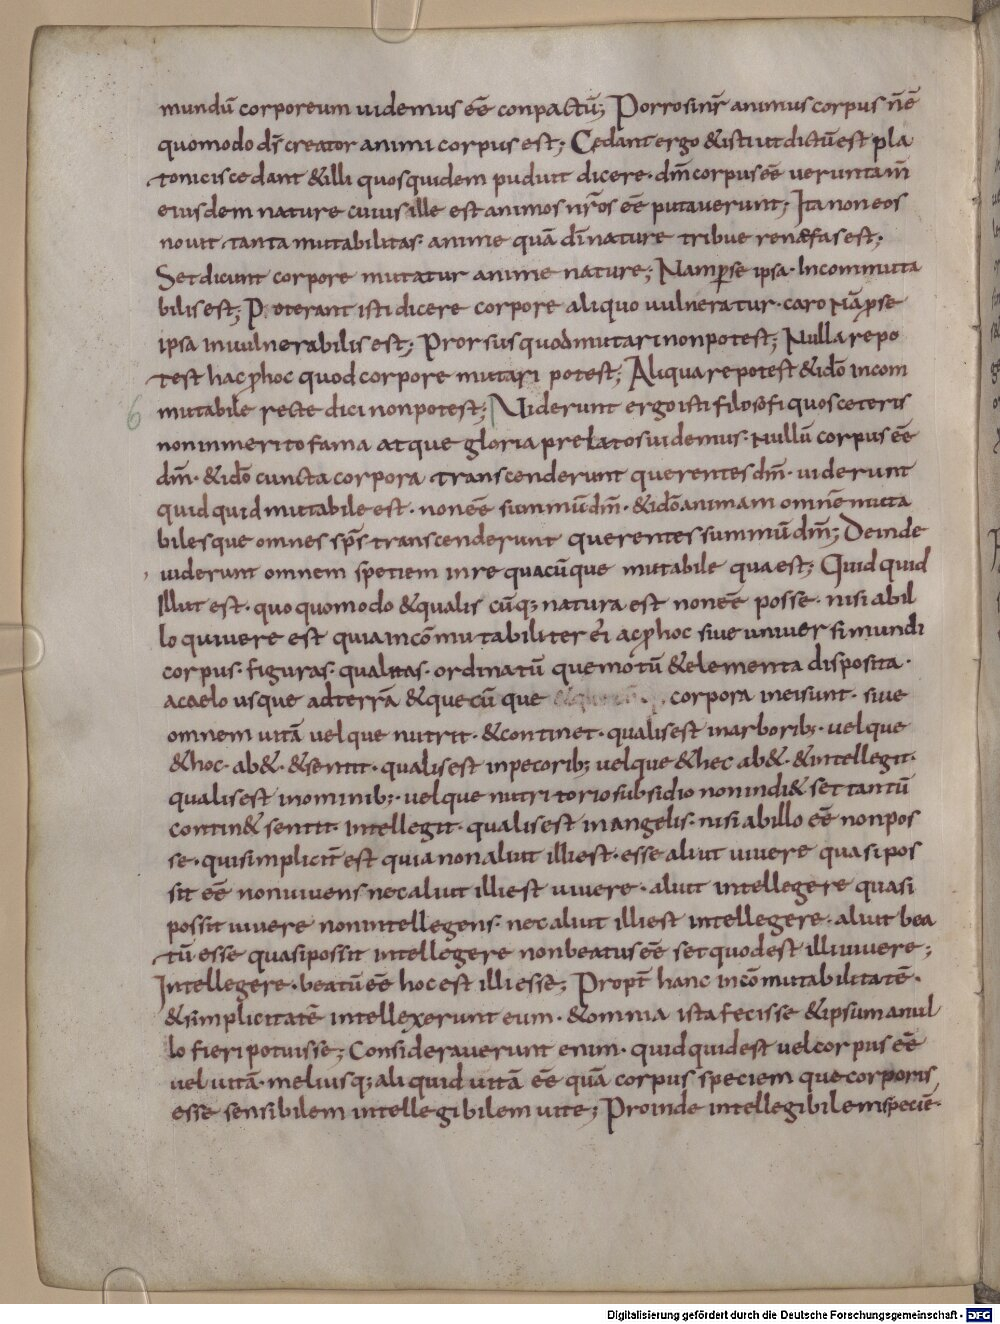 mundū corporeum uidemus eē conpactū; Porro si nr̄ animus corpus nē
quomodo ds̄ creator animi corpus est; Cedant ergo & isti ut dictū est pla
tonicis cedant & illi quos quidem puduit dicere · dm̄ corpus eē uerunt am̄
eiusdem nature cuius ille est animos nr̄os eē putauerunt; Ita non eos
nouit tanta mutabilitas anime quā dī nature tribuere nefas est;
Set dicunt corpore mutatur anime nature; Nam per se ipsa · Incommuta
bilis est; Poterant isti dicere corpore aliquo uulneratur · caro Nā per se
ipsa inuulnerabilis est; Prorsus quod mutari non potest; Nulla re po
test hac phoc quod corpore mutari potest; Aliqua re potest & idō incom
mutabile recte dici non potest; Uiderunt ergo isti filosofi quos ceteris
non inmerito fama atque gloria prelatos uidemus · Nullū corpus eē
dm̄ · & idō cuncta corpora transcenderunt querentes dm̄ · uiderunt
quidquid mutabile est · non eē summū dm̄ · & idō animam omnē muta
bilesque omnes sps̄ transcenderunt querentes summū dm̄; Deinde
uiderunt omnem speciem in re quacūque mutabile qua est; Quidquid
Illut est · quo quomodo & qualis cūq; natura est non eē posse · nisi ab il
lo qui uere est quia incōmutabiliter ē i ac phoc siue uniuersi mundi
corpus · figuras · qualitas · ordinatū que motū & elementa disposita ·
a caelo usque ad terrā & que cū que corpora in eis unt · siue
omnem uitā uel que nutrit · & continet · qualis est in arborib; · uel que
& hoc · ab& · & sentit · qualis est in pecorib; uel que & hec ab& · & intellegit ·
qualis est in ominib; · uel que nutritorio subsidio non indi& set tantū
contin& sentit · intellegit · qualis est in angelis · nisi ab illo eē non pos
se · qui simplicit̄ est quia non aliut illi est · esse aliut uiuere quasi pos
sit eē non uiuens nec aliut illi est uiuere · aliut intellegere quasi
possit uiuere non intellegens · nec aliut illi est intellegere · aliut bea
tū esse quasi possit intellegere non beatus eē set quod est illi uiuere;
Intellegere · beatū eē hoc est illi esse; Propt̄ hanc incōmutabilitatē ·
& simplicitatē intellexerunt eum · & omnia ista fecisse & ipsum a nul
lo fieri potuisse; Considerauerunt enim · quidquid est uel corpus eē
uel uitā · meliusq; aliquid uitā eē quā corpus speciem que corporis
esse sensibilem intellegibilem uite; Proinde intellegibilem speciē ·
6
Digitalisierung gefördert durch die Deutsche Forschungsgemeinschaft - DFG